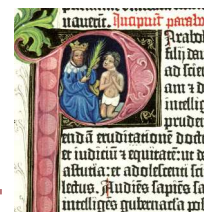 nauerit. Incipiūt parabo
Arabol
filij dau
ad scien
am ⁊ d
intellig
pruden
endā eruditationē doct
et iudiciū ⁊ equitatē: ut d
astutia: et adolescenti sci
lectus. Audiēs sapiēs sa
intelligēs gubernacla pos